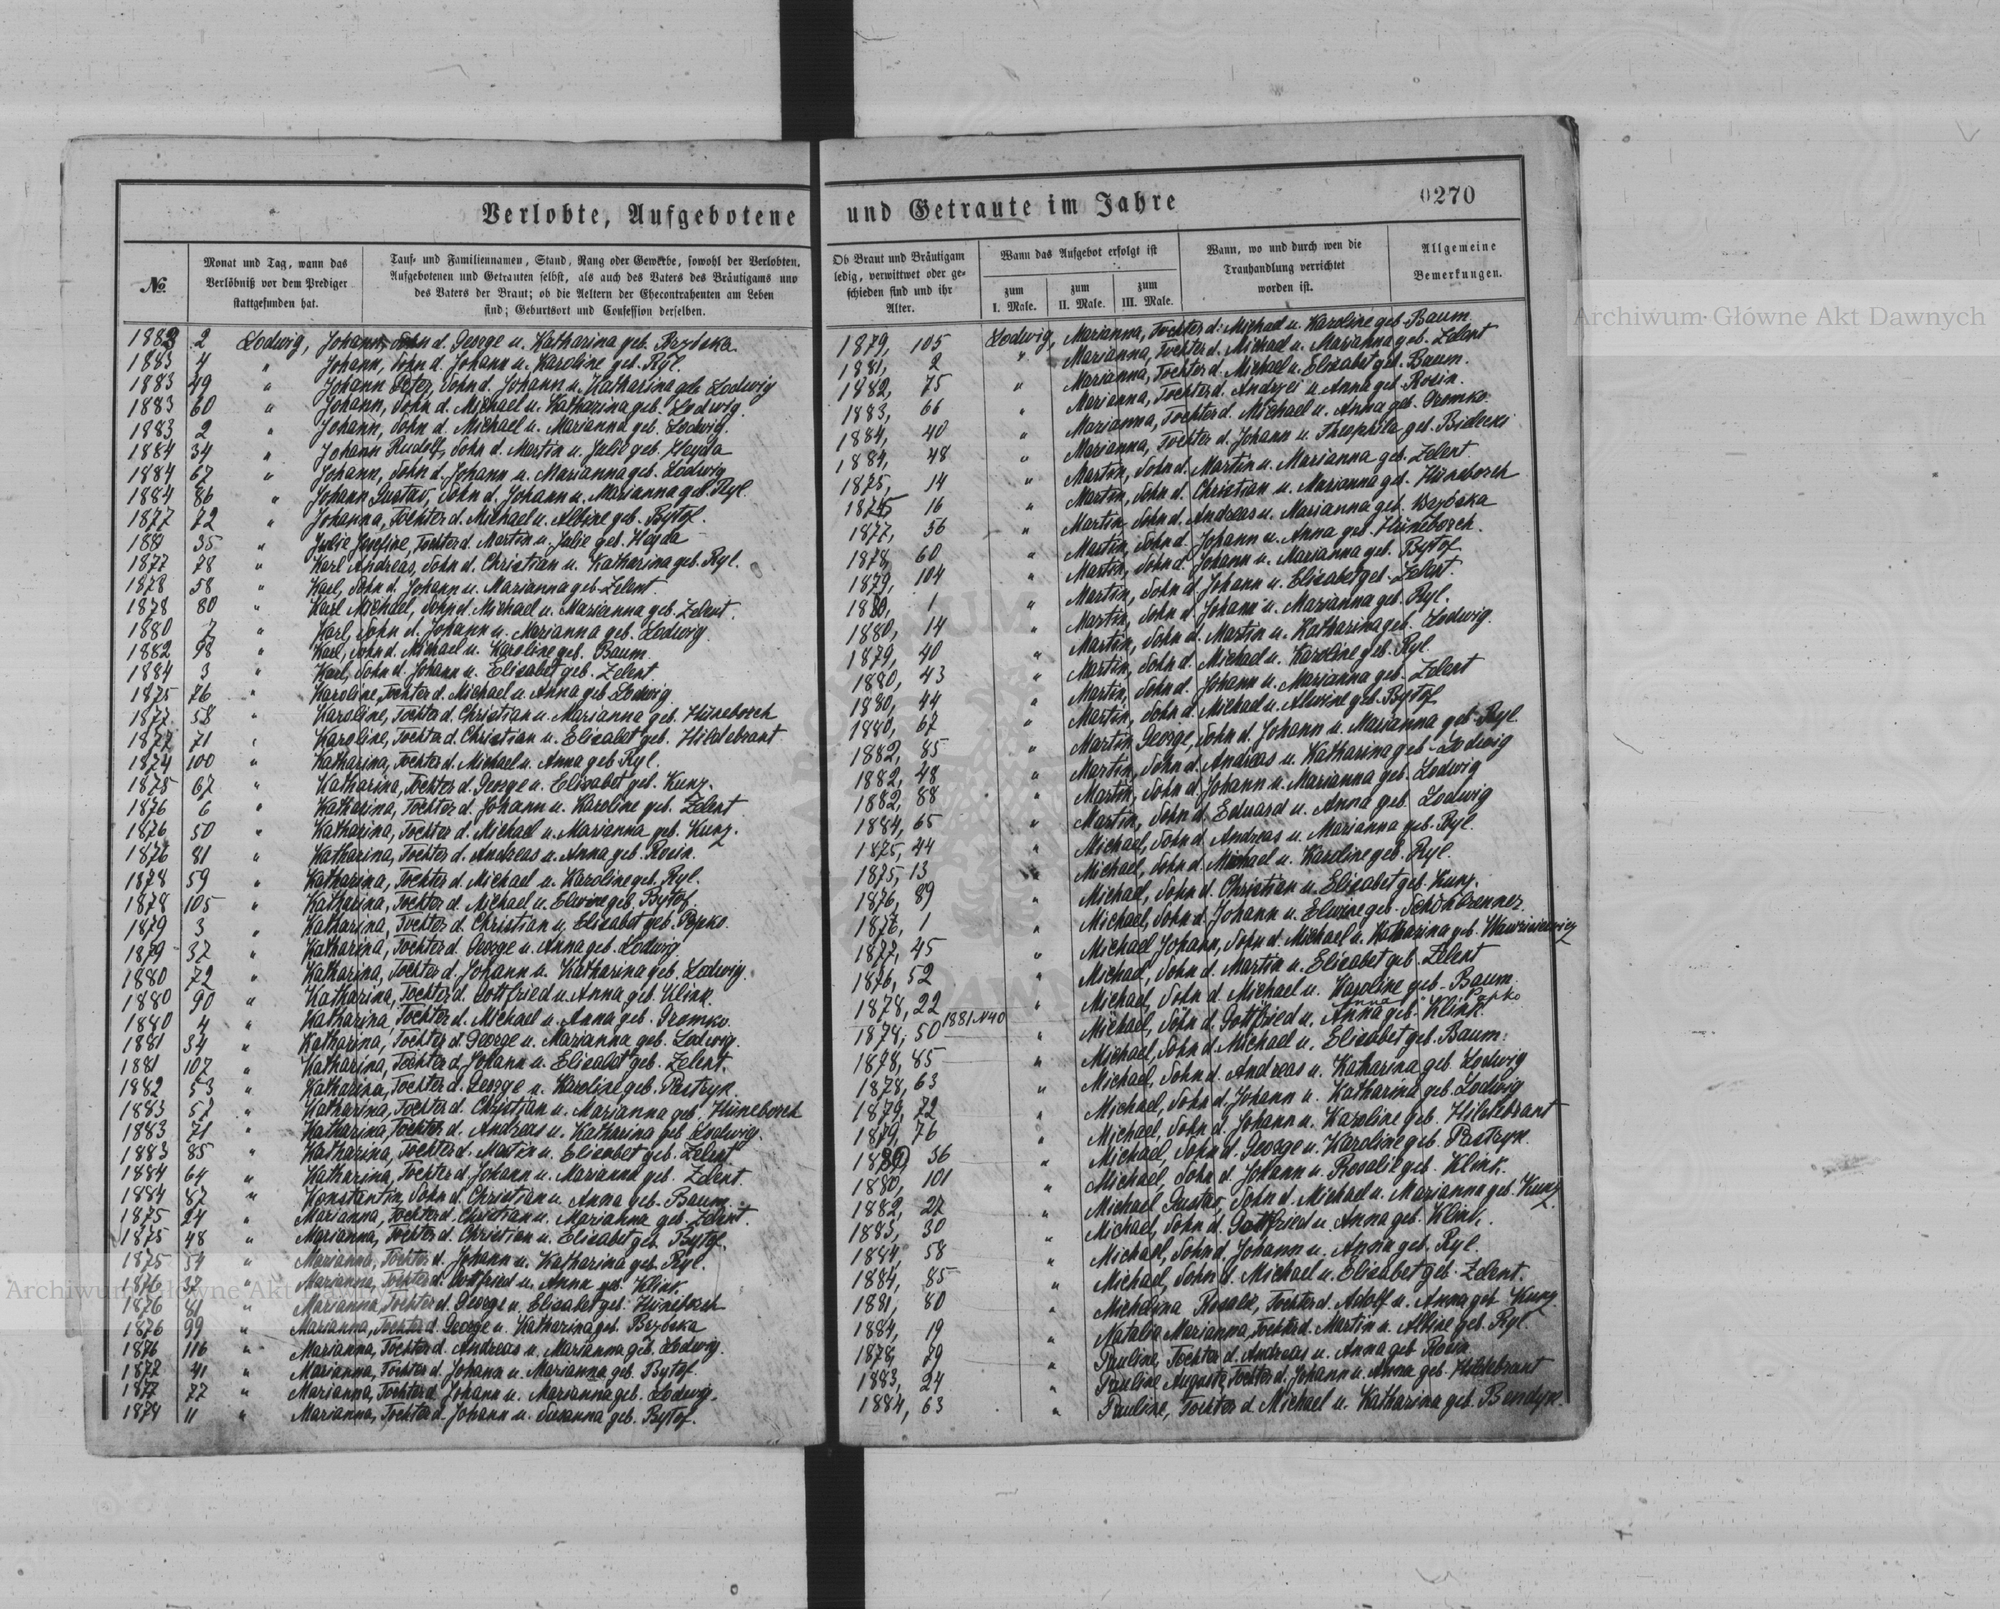 0270
Verlobte, Aufgebotene und Getraute im Jahre
№
Monat und Tag, wann das
Verlöbniß vor dem Prediger
stattgefunden hat.
Tauf- und Familiennamen, Stand, Rang oder Gewerbe, sowohl der Verlobten,
Aufgebotenen und Getrauten selbst, als auch des Vaters des Bräutigams und
des Vaters der Braut; ob die Aeltern der Ehecontrahenten am Leben
sind; Geburtsort und Confession derselben.
Ob Braut und Bräutigam
ledig, verwittwet oder ge-
schieden sind und ihr
Alter.
Wann das Aufgebot erfolgt ist
zum
I. Male.
zum
II. Male.
zum
III. Male.
Wann, wo und durch wen die
Trauhandlung verrichtet
worden ist.
Allgemeine
Bemerkungen.
2 Lodwig, Johann, Sohn d. George u. Katharina geb.
1883 4 " Johann, Sohn d. Johann u. Karoline geb. Ryl.
1883 49 " Johann Peter, Sohn d. Johann u. Katharina geb. Lodwig
1883 60 " Johann, Sohn d. Michael u. Katharina geb. Lodwig.
1883 2 " Johann, Sohn d. Michael u. Marianna geb. Lodwig.
1884 34 " Johann Rudolf, Sohn d. Martin u. Julie geb. Heyda
1884 67 " Johann, Sohn d. Johann u. Marianna geb. Lodwig
1884 86 " Johann Gustav, Sohn d. Johann u. Marianna geb. Ryl.
1877 72 " Johanna, Tochter d. Michael u. Albine geb. Bytof.
1881 35 " Julie Josefine, Tochter d. Martin u. Julie geb. Heyda
1877 78 " Karl Andreas, Sohn d. Christian u. Katharina geb. Ryl.
1878 58 " Karl, Sohn d. Johann u. Marianna geb. Zelent.
1878 80 " Karl Michael, Sohn d. Michael u. Marianna geb. Zelent.
1880 7 " Karl, Sohn d. Johann u. Marianna geb. Lodwig.
1882 98 " Karl, Sohn d. Michael u. Karoline geb. Baum.
1884 3 " Karl, Sohn d. Johann u. Elisabet geb. Zelent.
1875 76 " Karoline, Tochter d. Michael u. Anna geb. Lodwig.
1877 58 " Karoline, Tochter d. Christian u. Marianna geb. Hüneborch
1877 71 " Karoline, Tochter d. Christian u. Elisabet geb. Hildebrant
1874 100 " Katharina, Tochter d. Michael u. Anna geb. Ryl.
1875 67 " Katharina, Tochter d. George u. Elisabet geb. Kunz.
1876 6 " Katharina, Tochter d. Johann u. Karoline geb. Zelent
1876 50 " Katharina, Tochter d. Michael u. Marianna geb. Kunz.
1876 81 " Katharina, Tochter d. Andreas u. Anna geb. Rosin.
1878 59 " Katharina, Tochter d. Michael u. Karoline geb. Ryl.
1878 105 " Katharina, Tochter d. Michael u. Elwine geb. Bytof.
1879 3 " Katharina, Tochter d. Christian u. Elisabet geb. Popko.
1879 37 " Katharina, Tochter d. George u. Anna geb. Lodwig
1880 72 " Katharina, Tochter d. Johann u. Katharina geb. Lodwig.
1880 90 " Katharina, Tochter d. Gottfried u. Anna geb. Klink.
1880 4 " Katharina, Tochter d. Michael u. Anna geb. Gromko.
1881 34 " Katharina, Tochter d. George u. Marianna geb. Lodwig.
1881 107 " Katharina, Tochter d. Johann u. Elisabet geb. Zelent.
1882 53 " Katharina, Tochter d. George u. Karoline geb. Pastryk.
1883 57 " Katharina, Tochter d. Christian u. Marianna geb. Hüneborch
1883 71 " Katharina, Tochter d. Andreas u. Katharina geb. Lodwig.
1883 85 " Katharina, Tochter d. Martin u. Elisabet geb. Zelent
1884 64 " Katharina, Tochter d. Johann u. Marianna geb. Zelent.
1884 87 " Konstantin, Sohn d. Christian u. Anna geb. Baum.
1875 24 " Marianna, Tochter d. Christian u. Marianna geb. Zelent.
1875 48 " Marianna, Tochter d. Christian u. Elisabet geb. Bytof.
1875 54 " Marianna, Tochter d. Johann u. Katharina geb. Ryl.
1876 37 " Marianna, Tochter d. Gottfried u. Anna geb. Klink.
1876 81 " Marianna, Tochter d. George u. Elisabet geb. Hüneborch
1876 99 " Marianna, Tochter d. George u. Katharina geb. Brzoska
1876 116 " Marianna, Tochter d. Andreas u. Marianna geb. Lodwig.
1877 41 " Marianna, Tochter d. Johann u. Marianna geb. Bytof.
1877 77 " Marianna, Tochter d. Johann u. Marianna geb. Lodwig.
1878 11 " Marianna, Tochter d. Johann u. Susanna geb. Bytof.
1879, 105 Lodwig, Marianna, Tochter d. Michael u. Karoline geb. Baum
1881, 2 " Marianna, Tochter d. Michael u. Marianna geb. Zelent
1882, 75 " Marianna, Tochter d. Michael u. Elisabet geb. Baum.
1883, 66 " Marianna, Tochter d. Andrzei u. Anna geb. Rosin.
1884, 40 " Marianna, Tochter d. Michael u. Anna geb. Gromko.
1884, 48 " Marianna, Tochter d. Johann u. Theophila geb.
1875, 14 " Martin, Sohn d. Martin u. Marianna geb. Zelent
1875 16 " Martin, Sohn d. Christian u. Marianna geb. Hüneborch
1877, 56 " Martin, Sohn d. Andreas u. Marianna geb. Brzoska
1878, 60 " Martin, Sohn d. Johann u. Anna geb. Hüneborch.
1879, 104 " Martin, Sohn d. Johann u. Marianna geb. Bytof
1880, 1 " Martin, Sohn d. Johann u. Elisabet geb. Zelent
1880, 14 " Martin, Sohn d. Johann u. Marianna geb. Ryl.
1879, 40 " Martin, Sohn d. Martin u. Katharina geb. Lodwig.
1880, 43 " Martin, Sohn d. Michael u. Karoline geb. Ryl.
1880, 44 " Martin, Sohn d. Johann u. Marianna geb. Zelent
1880, 67 " Martin, Sohn d. Michael u. Alwine geb. Bytof
1882, 85 " Martin George, Sohn d. Johann u. Marianna geb. Ryl
1882, 48 " Martin, Sohn d. Andreas u. Katharina geb. Lodwig
1882, 88 " Martin, Sohn d. Johann u. Marianna geb. Lodwig
1884, 65 " Martin, Sohn d. Eduard u. Anna geb. Lodwig
1875, 44 " Michael, Sohn d. Andreas u. Marianna geb. Ryl.
1875, 13 " Michael, Sohn d. Michael u. Karoline geb. Ryl.
1876, 89 " Michael, Sohn d. Christian u. Elisabet geb. Kunz.
1876, 1 " Michael, Sohn d. Johann u. Elwine geb. Schönbrenner.
1877, 45 " Michael Johann, Sohn d. Michael u. Katharina geb.
1876, 52 " Michael, Sohn d. Martin u. Elisabet geb. Zelent
1878, 22 " Michael, Sohn d. Michael u. Karoline geb. Baum.
1878, 50 1881 N40 " Michael, Sohn d. Gottfried u. Anna geb. Klink.
Anna " Popko
1878, 85 " Michael, Sohn d. Michael u. Elisabet geb. Baum.
1878, 63 " Michael, Sohn d. Andreas u. Katharina geb. Lodwig
1879, 72 " Michael, Sohn d. Johann u. Katharina geb. Lodwig
1879, 76 " Michael, Sohn d. Johann u. Karoline geb. Hildebrant
1880, 36 " Michael, Sohn d. George u. Karoline geb. Pastryk.
1880, 101 " Michael, Sohn d. Johann u. Rosalie geb. Klink.
1882, 27 " Michael Gustav, Sohn d. Michael u. Marianna geb. Kunz
1883, 30 " Michael, Sohn d. Gottfried u. Anna geb. Klink.
1884, 58 " Michael, Sohn d. Johann u. Anna geb. Ryl.
1884, 85 " Michael, Sohn d. Michael u. Elisabet geb. Zelent.
1881, 80 " Michalina Rosalie, Tochter d. Adolf u. Anna geb. Kunz.
1884, 19 " Natalia Marianna, Tochter d. Martin u. Albine geb. Ryl.
1878, 79 " Pauline, Tochter d. Andreas u. Anna geb. Rosin
1883, 24 " Pauline Auguste, Tochter d. Johann u. Anna geb. Hildebrant
1884, 63 " Pauline, Tochter d. Michael u. Katharina geb. Bendyk.
Archiwum Główne Akt Dawnych
Archiwum Główne Akt Dawnych